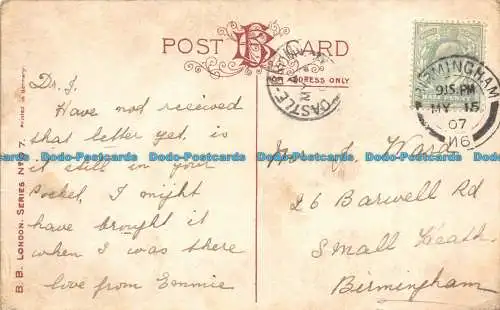 POST CARD
BB
ADDRESS ONLY
Dr. J.
Have not received
that letter yet, is
it still in your
Pocket, I might
have brought it
when I was there
love from Emmie
J. Ward
26 Barwell Rd
Small Heath
Birmingham
BIRMINGHAM
9.15 PM
MY 15
07
CASTLE-BROMWICH
B. B. LONDON. SERIES
Printed in Germany.
Dodo-Postcards Dodo-Postcards Dodo-Postcards Dodo-Postcards Dodo-Postcards
Dodo-Postcards Dodo-Postcards Dodo-Postcards Dodo-Postcards Dodo-Postcards